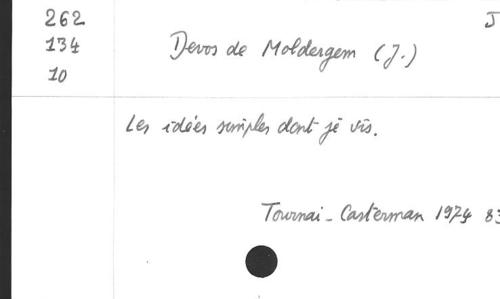 262
134
10
J
Devos de Moldergem (J.)
Les idées simples dont je vis.
Tournai - Casterman 1974 83